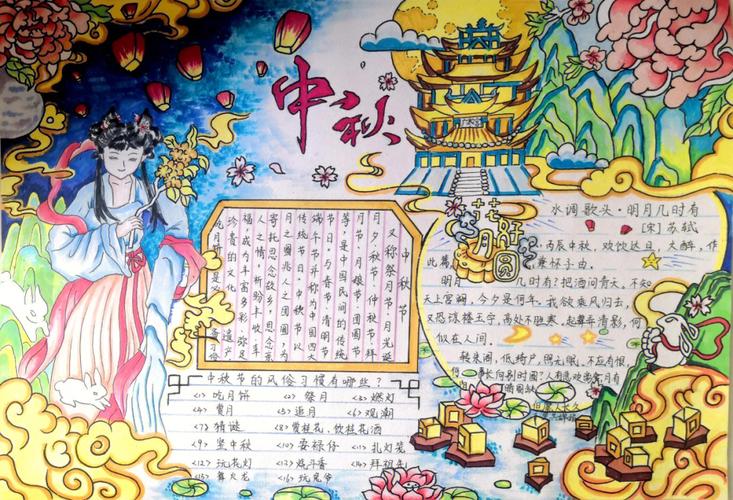 中秋
中秋节
又称祭月节、月光诞、
月夕、秋节、仲秋节、拜
月节、月娘节、团圆节
等，是中国民间的传统
节日。与春节、清明节、
端午节并称为中国四大
传统节日。中秋节以
月之圆兆人之团圆，为
寄托思念故乡，思念亲
人之情，祈盼丰收、幸
福，成为丰富多彩、弥足
珍贵的文化遗产
花好月圆
水调歌头·明月几时有
[宋]苏轼
丙辰中秋，欢饮达旦，大醉，作
此篇，兼怀子由。
明月几时有？把酒问青天。不知
天上宫阙，今夕是何年。我欲乘风归去，
又恐琼楼玉宇，高处不胜寒。起舞弄清影，何
似在人间。
转朱阁，低绮户，照无眠。不应有恨，
何事长向别时圆？人有悲欢离合，月有
阴晴圆缺
但愿人
中秋节的风俗习惯有哪些？
<1> 吃月饼 <2> 祭月 <3> 燃灯
<4> 赏月 <5> 追月 <6> 观潮
<7> 猜谜 <8> 赏桂花、饮桂花酒
<9> 竖中秋 <10> 兔禄仔 <11> 扎灯笼
<12> 玩花灯 <13> 烧斗香 <14> 拜祖先
<15> 舞火龙 <16> 玩兔爷